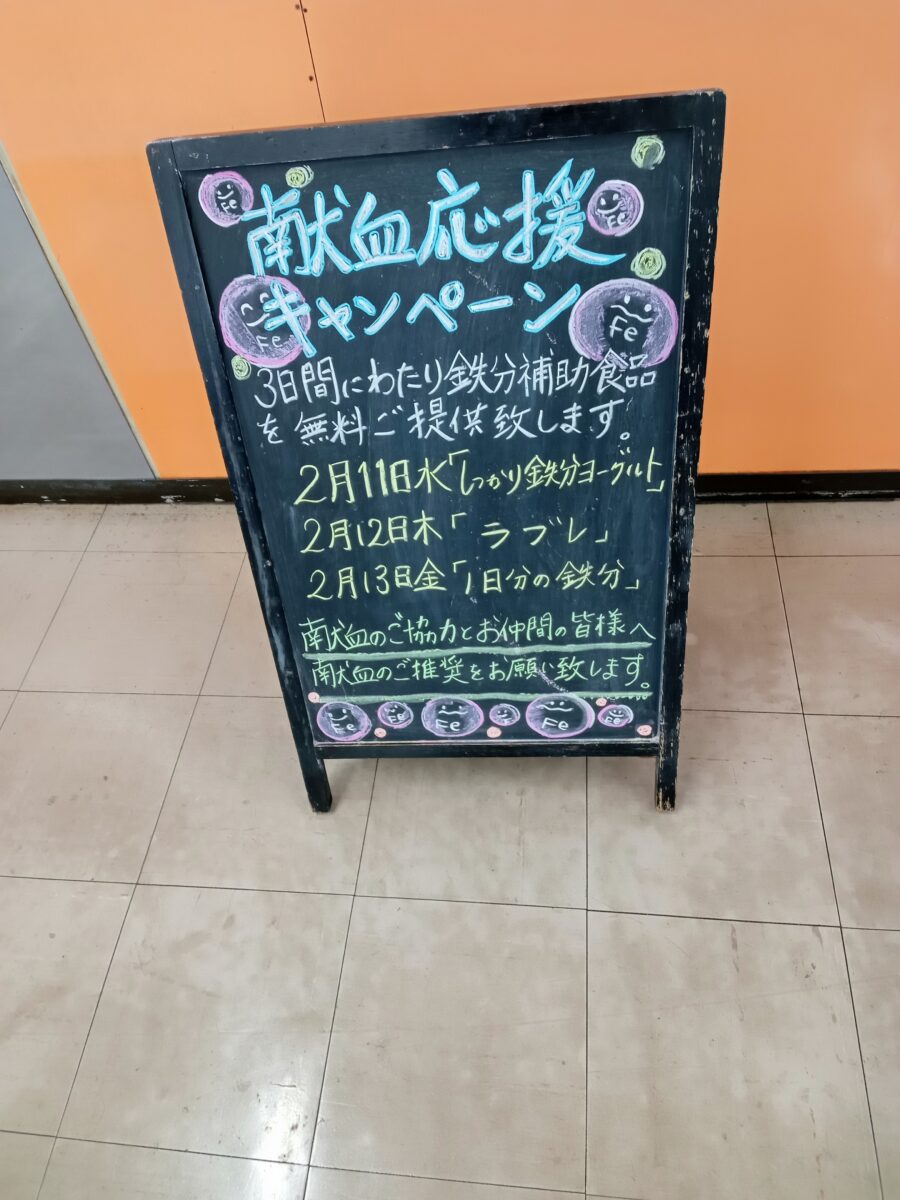 Fe
献血応援
Fe
Fe
キャンペーン
Fe
3日間にわたり鉄分補助食品
を無料ご提供致します。
2月11日水「しっかり鉄分ヨーグルト」
2月12日木「ラブレ」
2月13日金「1日分の鉄分」
献血のご協力とお仲間の皆様へ
献血のご推奨をお願い致します。
Fe
Fe
Fe
Fe
Fe
Fe